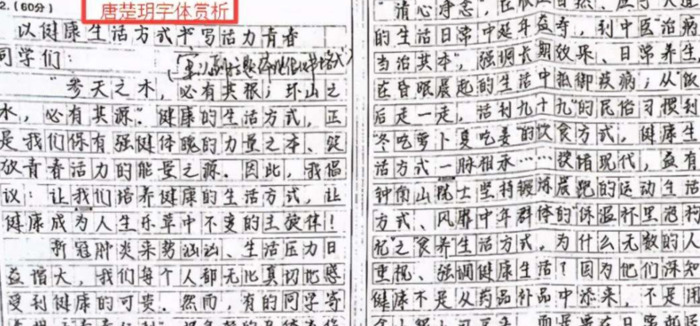 2.(60分)
唐楚玥字体赏析
以健康生活方式书写活力青春
同学们：
"参天之木，必有其根；环山之
水，必有其源。"健康的生活方式，正
是我们保有强健体魄的力量之本、绽
放青春活力的能量之源。因此，我倡
议：让我们培养健康的生活方式，让
健康成为人生乐章中不变的主旋律！
新冠肺炎来势汹汹、生活压力日
益增大，我们每个人都无比真切地感
受到健康的可贵。然而，有的同学寄
"清心净志，
的生活日常中延年益寿，到中医"治病
当治其本"，强调长期效果、日常养生，
在昏眠晨起的生活中抵御疾病；从"饭
后走一走，活到九十九"的民俗习授到
"冬吃萝卜夏吃姜"的饮食方式，健康生
活方式一脉相承……按诸现代，益有
钟南山院士坚持锻炼晨跑的运动生活
方式、风靡中年群体的"保温杯里泡枸
杞"之食养生活方式，为什么无数的人
重视、强调健康生活？因为他们深知
健康不是从药品补品中添来，不是闭